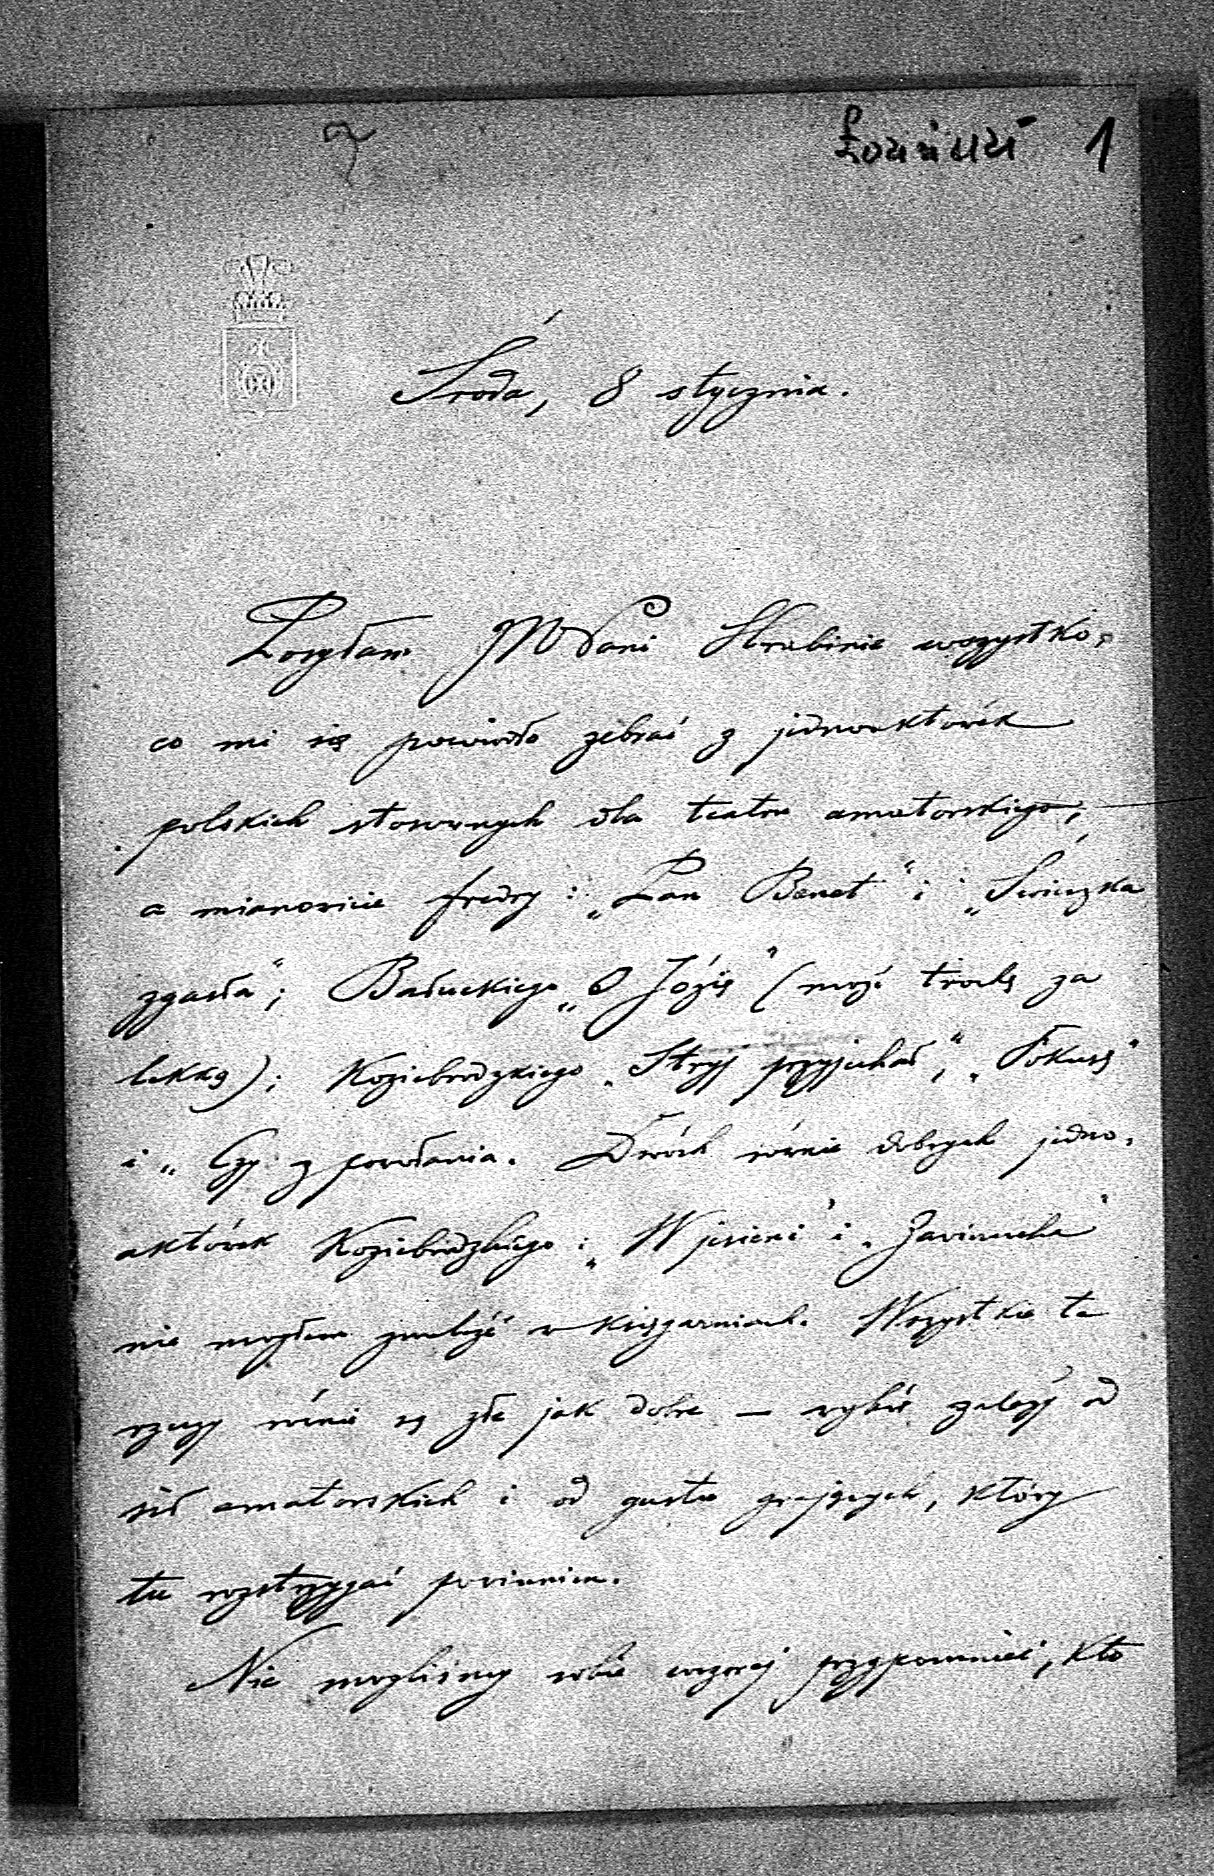 Łoziński 1
Środa, 8 stycznia.
Posyłam JWPani Hrabinie wszystko,
co mi się powiodło zebrać z jednoaktówek
polskich stosownych dla teatru amatorskiego,
a mianowicie Fredry: „Pan Benet" i „Świeczka
zgasła"; Bałuckiego „O Józię" (może trochę za
lekką); Koziebrodzkiego „Stryj przyjechał", „Po
i „Czy z powołania. Dwóch równie dobrych jedno-
aktówek Koziebrodzkiego: „W jesieni" i „Zawierucha"
nie mogłem znaleźć w księgarniach. Wszystkie te
rzeczy równie są złe jak dobre — wybór zależy od
sił amatorskich i od gustu grających, który
tu rozstrzygać powinien.
Nie mogliśmy sobie wczoraj przypomnieć, kto